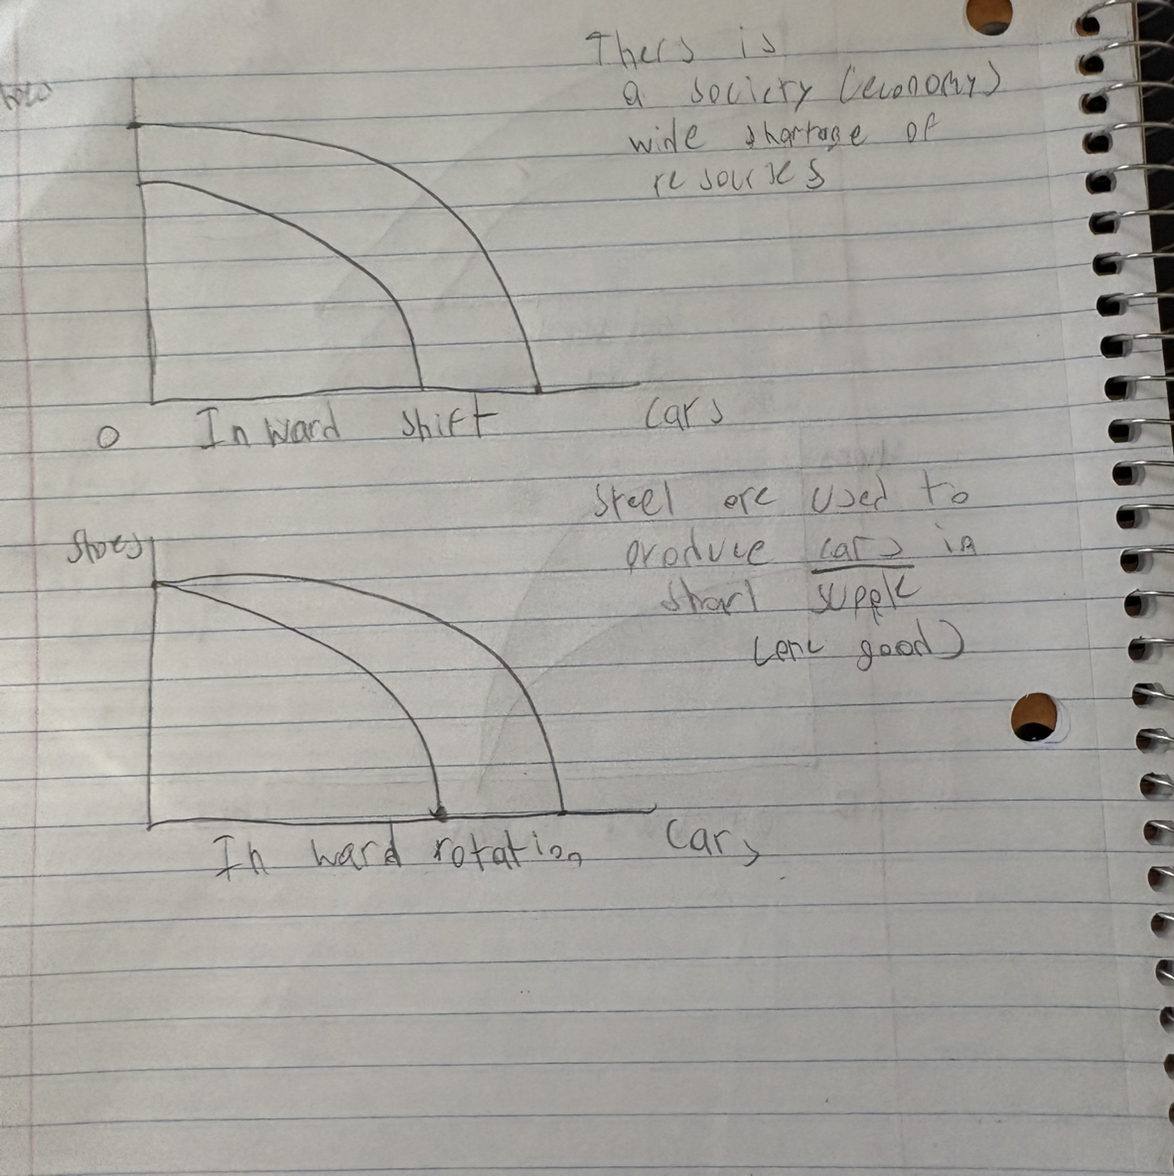 Thers is
a society (economy)
wide shortage of
resources
0 Inward shift Cars
Steel are used to
produce cars in
short supple
(one good)
shoes
In ward rotation Cars